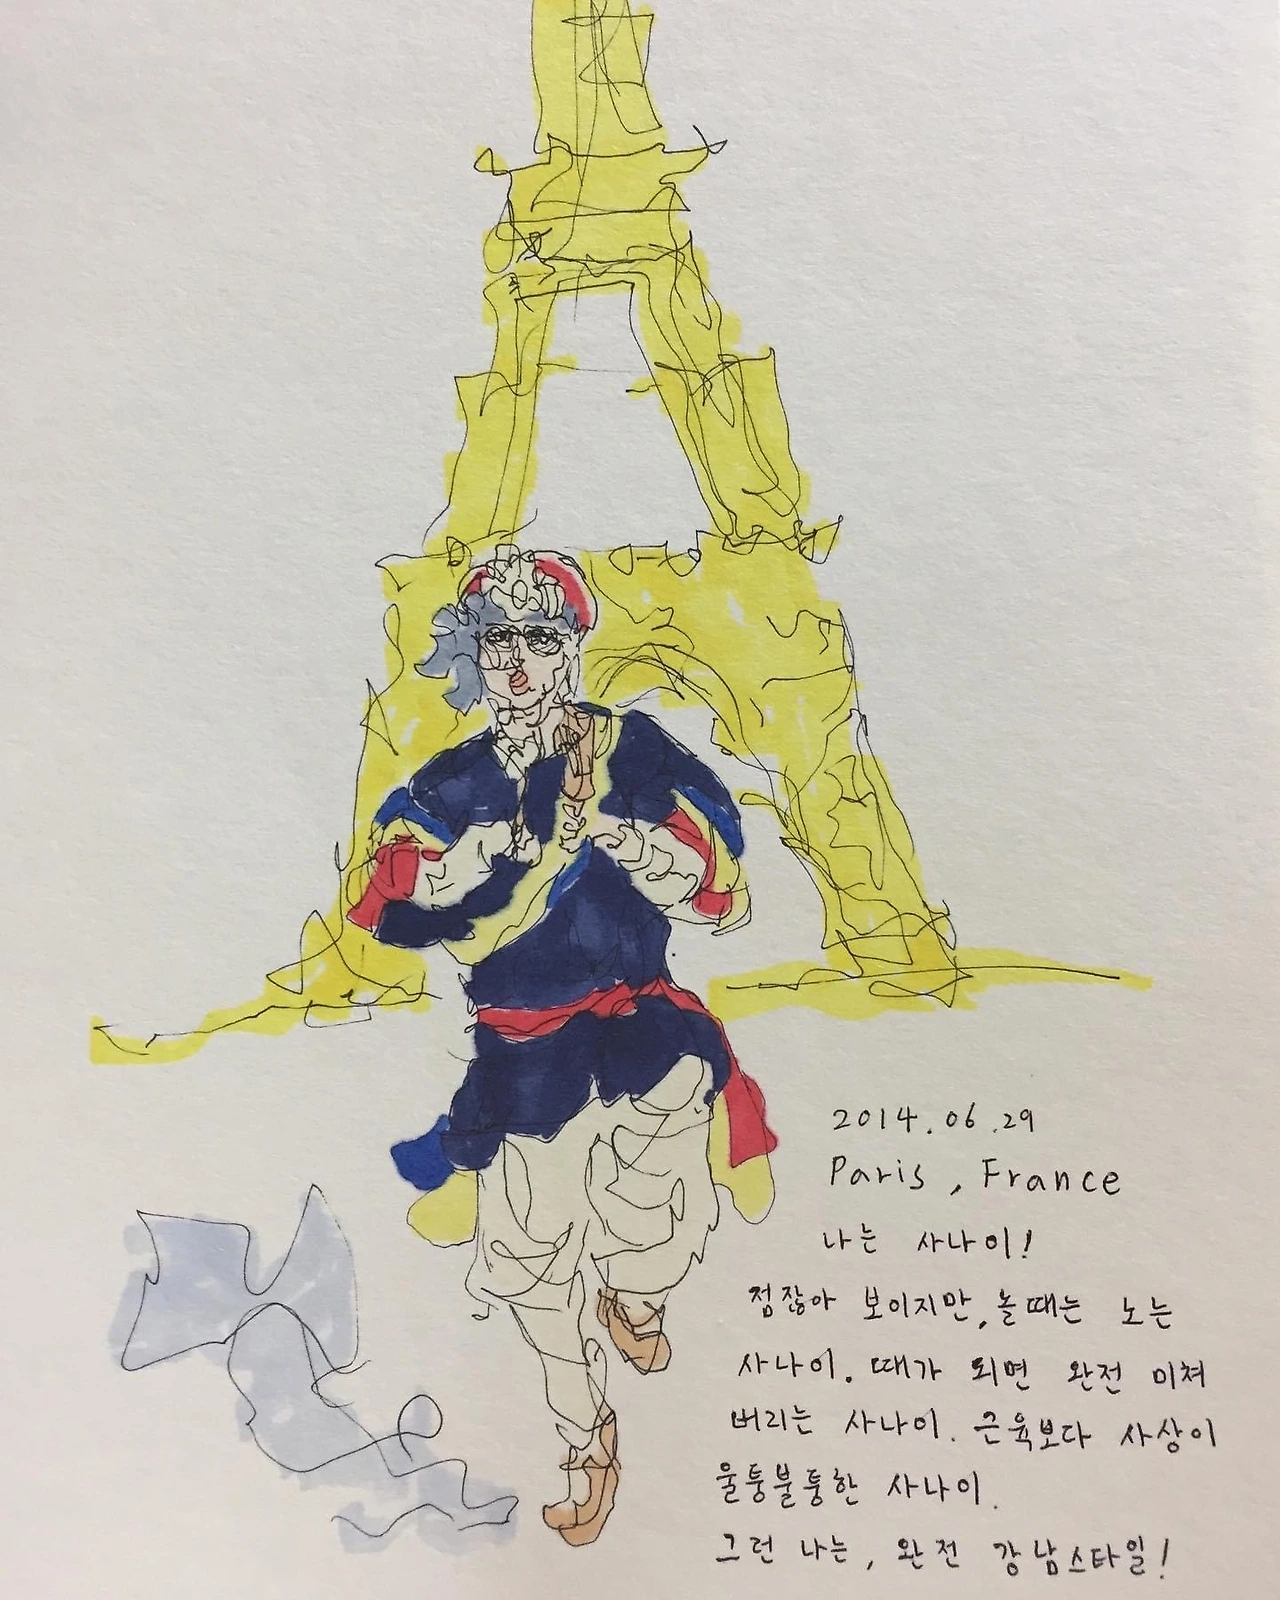 2014.06.29
Paris, France
나는 사나이!
점잖아 보이지만, 놀때는 노는
사나이. 때가 되면 완전 미쳐
버리는 사나이. 근육보다 사상이
울퉁불퉁한 사나이.
그런 나는, 완전 강남스타일!